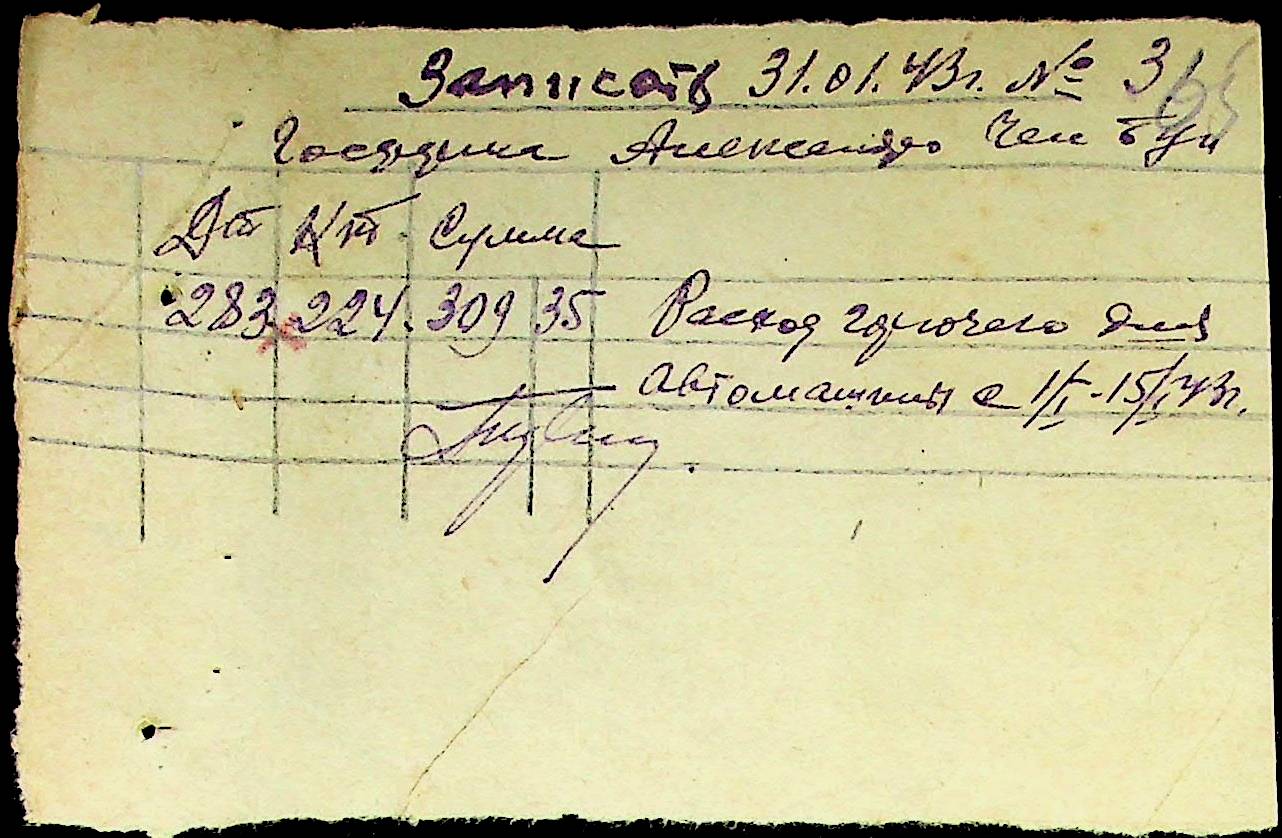 Записать 31.01.43г. № 3
Господина Александр Чен
Дт Кт Сумма
283 224. 309 35 Расход горючего для
автомашины с 1/I-15/I 43г.